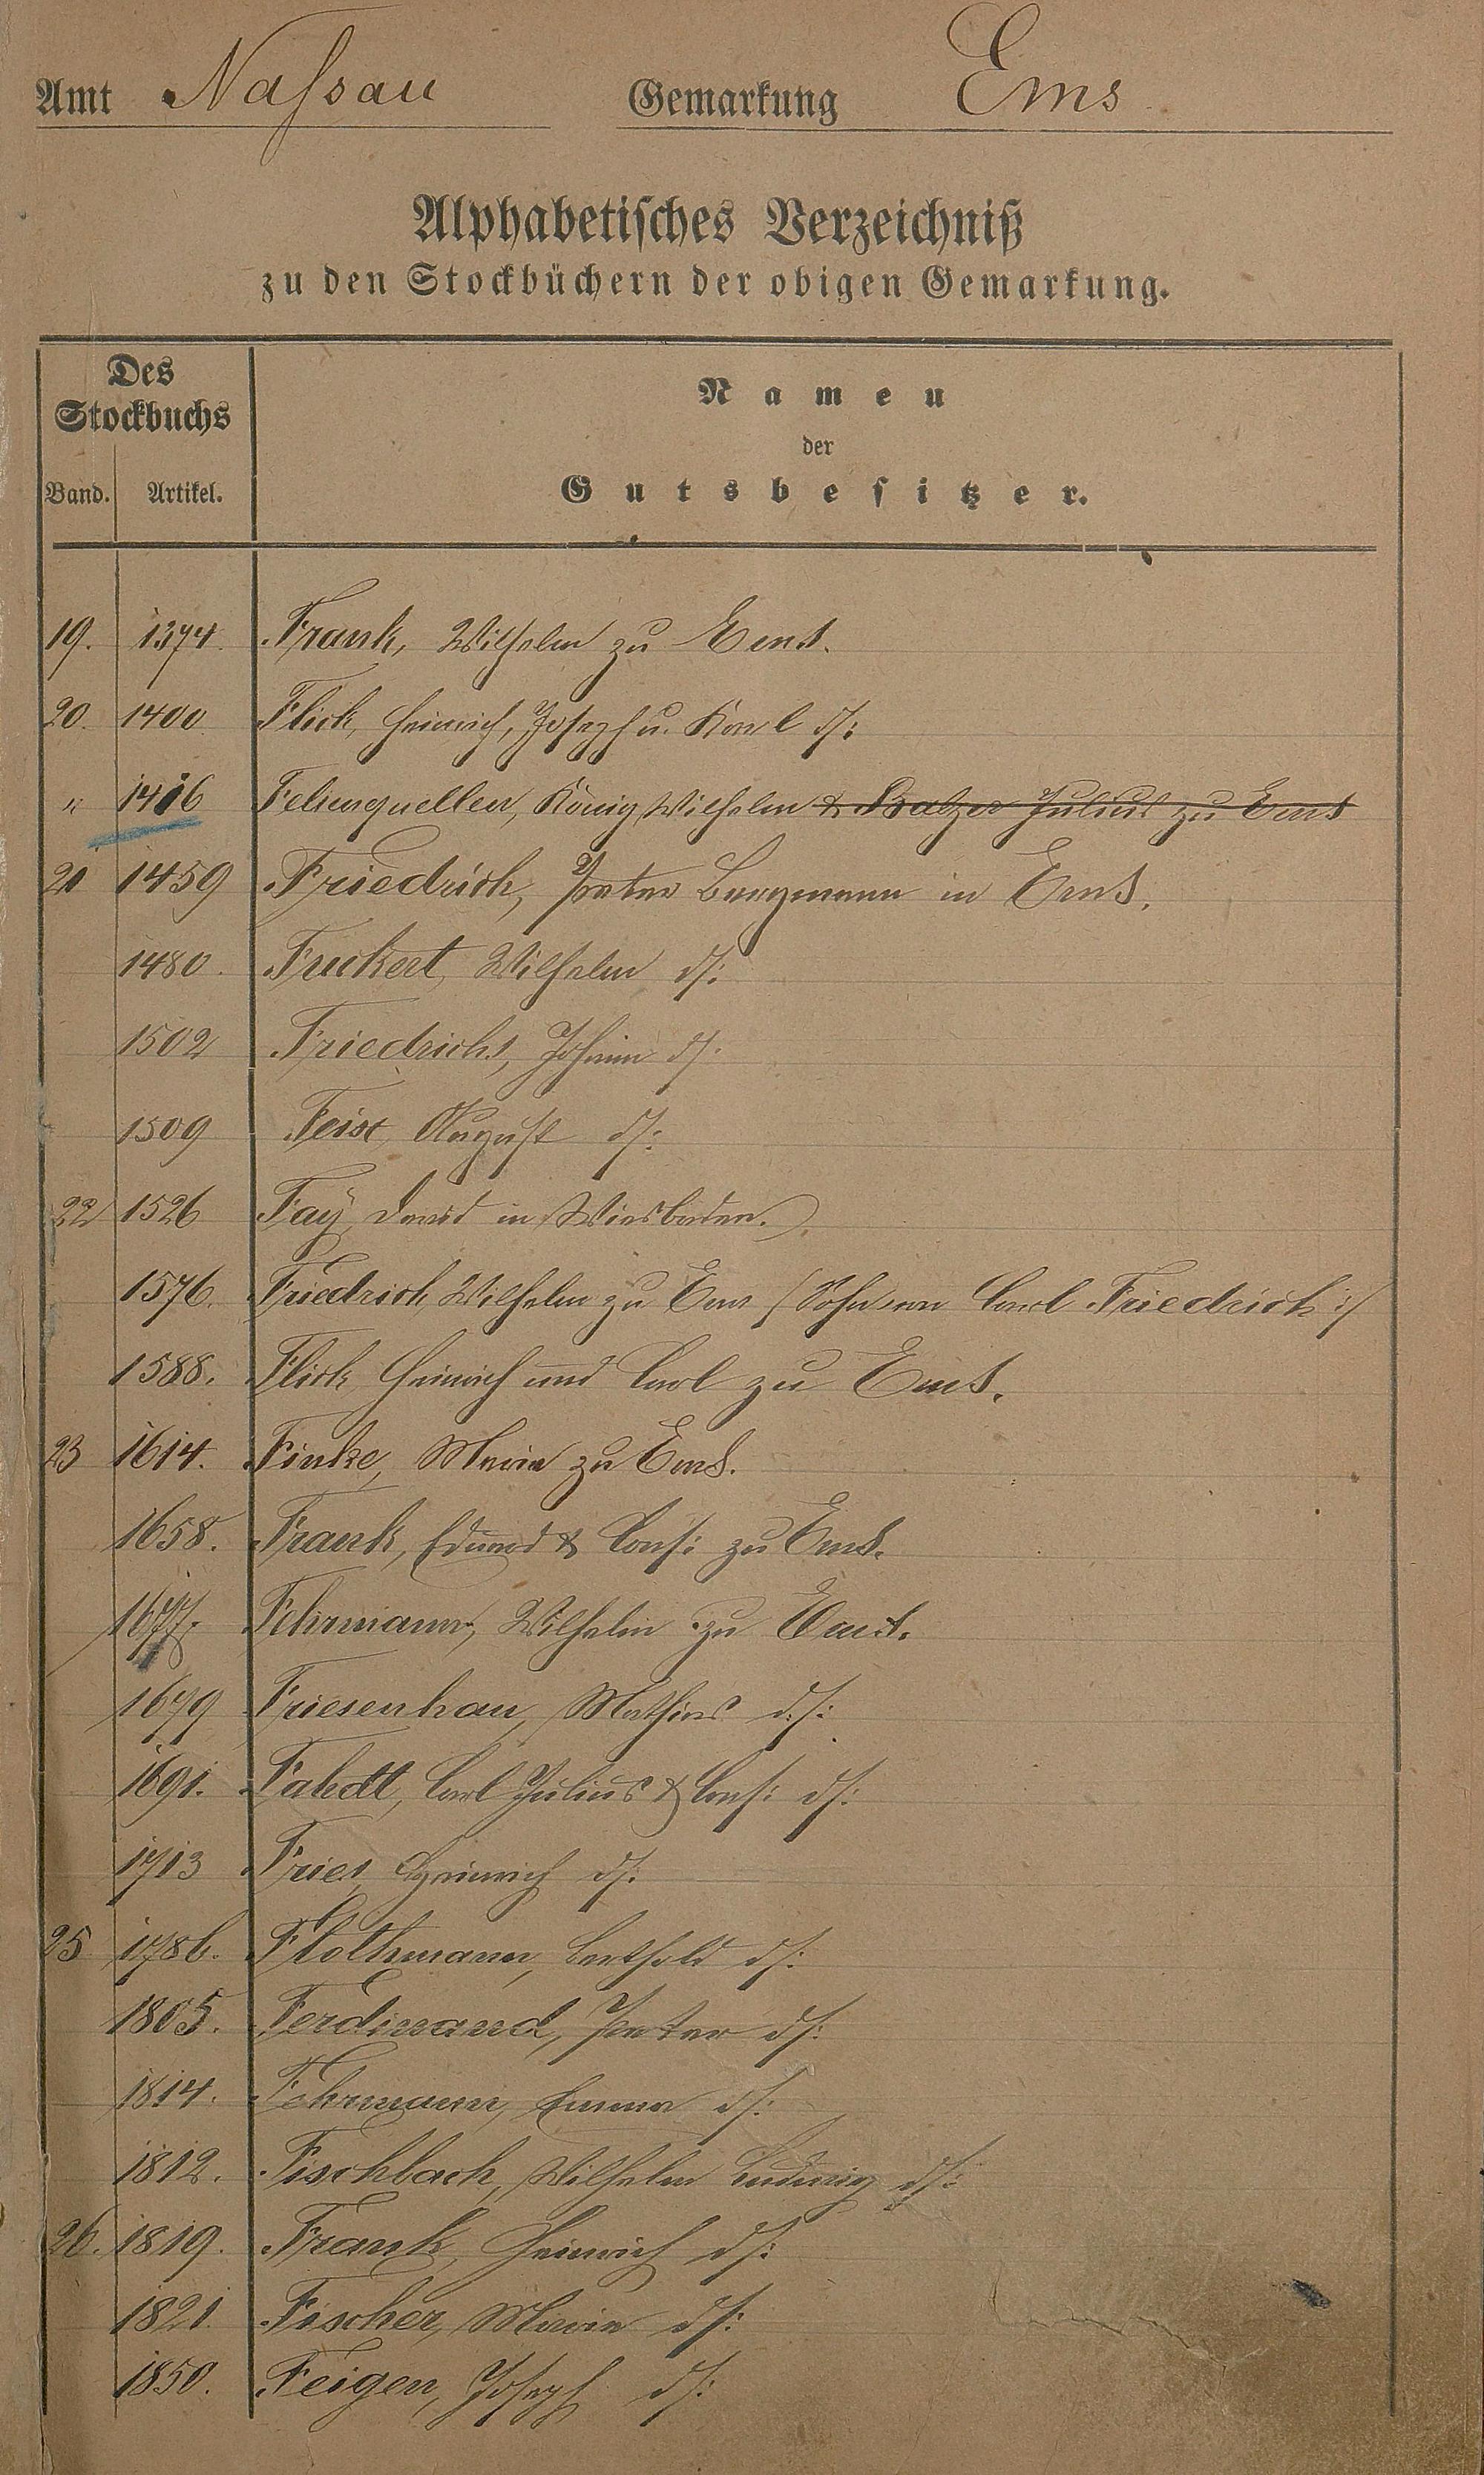 Amt Nassau Gemarkung Ems
Alphabetisches Verzeichniß
zu den Stockbüchern der obigen Gemarkung.
Des
Stockbuchs
Band. Artikel.
Namen
der
Gutsbesitzer.
19. 1374. Frank, Wilhelm zu Ems.
20. 1400 Flick, Heinrich, Joseph u. Karl ds:
" 1416 Felsenquellen, König Wilhelm & Balzer Julius zu Ems
21 1459 Friedrich, Peter Bergmann in Ems.
1480. Fuckert, Wilhelm ds:
1502 Friedrichs, Johann ds.
1509 Feist, August ds:
22 1526 Faÿ, David in Wiesbaden.
1576. Friedrich, Wilhelm zu Ems /: Sohn von Carl Friedrich :/
1588. Flick, Heinrich und Carl zu Ems.
23 1614. Finke, Maria zu Ems.
1658. Frank, Eduard & Cons: zu Ems.
1677. Fehrmann, Wilhelm zu Ems.
1679 Friesenhan, Mathias ds:
1691. Fahdt, Carl Julius & Cons: ds:
1713 Fries, Heinrich ds:
25 1786. Flothmann, Berthold ds:
1805. Ferdinand, Peter ds:
1814. Fehrmann, Emma ds:
1812. Fischbach, Wilhelm Ludwig ds:
26. 1819. Frank, Heinrich ds:
1821. Fischer, Maria ds:
1850. Feigen, Joseph ds: